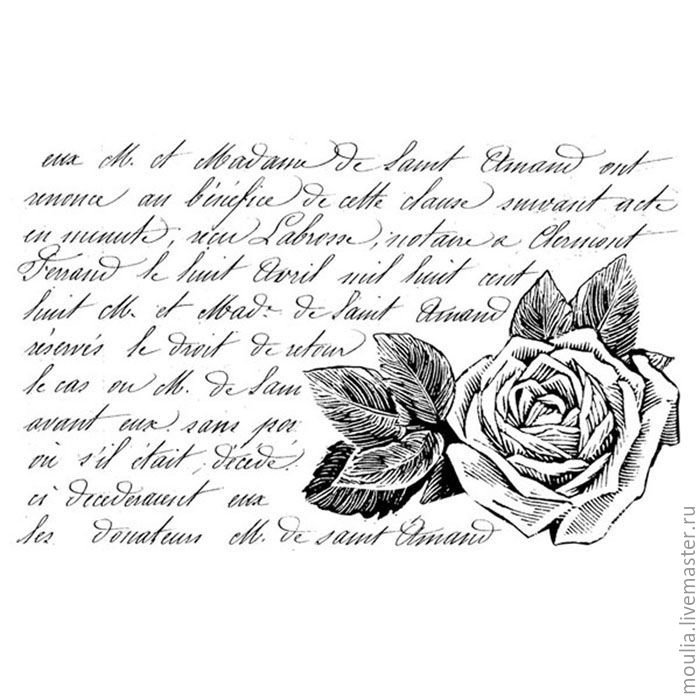 eux M. et Madame de Saint Amand ont
renonce au bénéfice de cette clause suivant acte
en minute, récu Labrosse, notaire a Clermont
Ferrand le huit Avril mil huit cent
huit M. et Mad.e de Saint Amand
réservés le droit de retour
le cas ou M. de Sain
avant eux sans pos
où s'il était décédé
ci decederaient eux
les donateurs M. de saint Amand
moulia.livemaster.ru